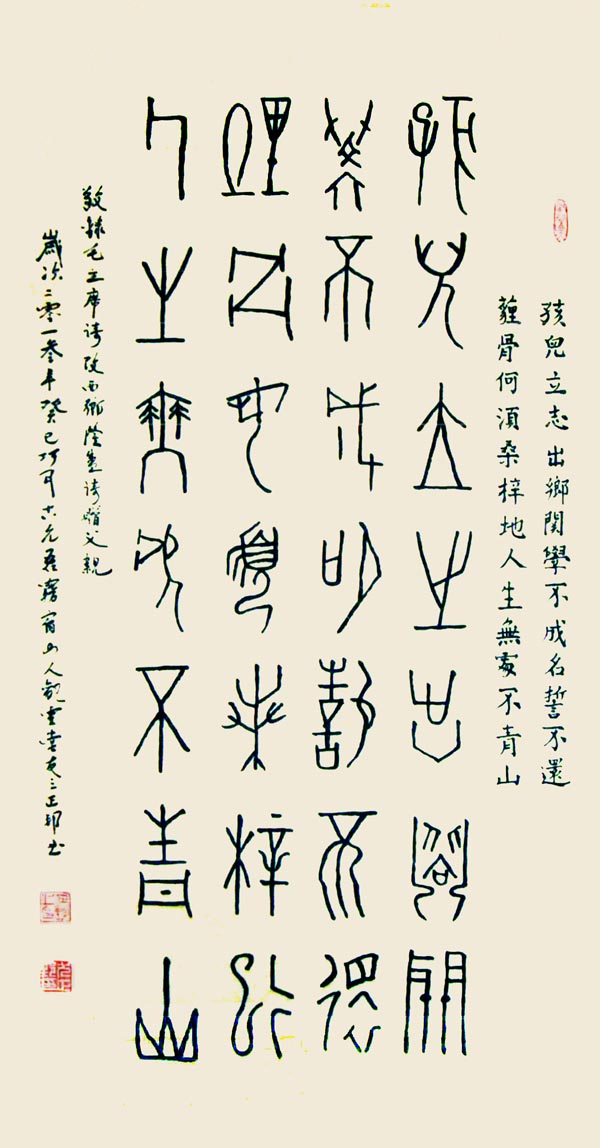 孩兒立志出鄉関學不成名誓不還
薶骨何須桑梓地人生無處不青山
孩兒立志出鄉關
學不成名誓不還
埋骨何須桑梓地
人生無處不青山
敬錄毛主席詩改西鄉隆盛詩贈父親
歲次二零一叁年癸巳